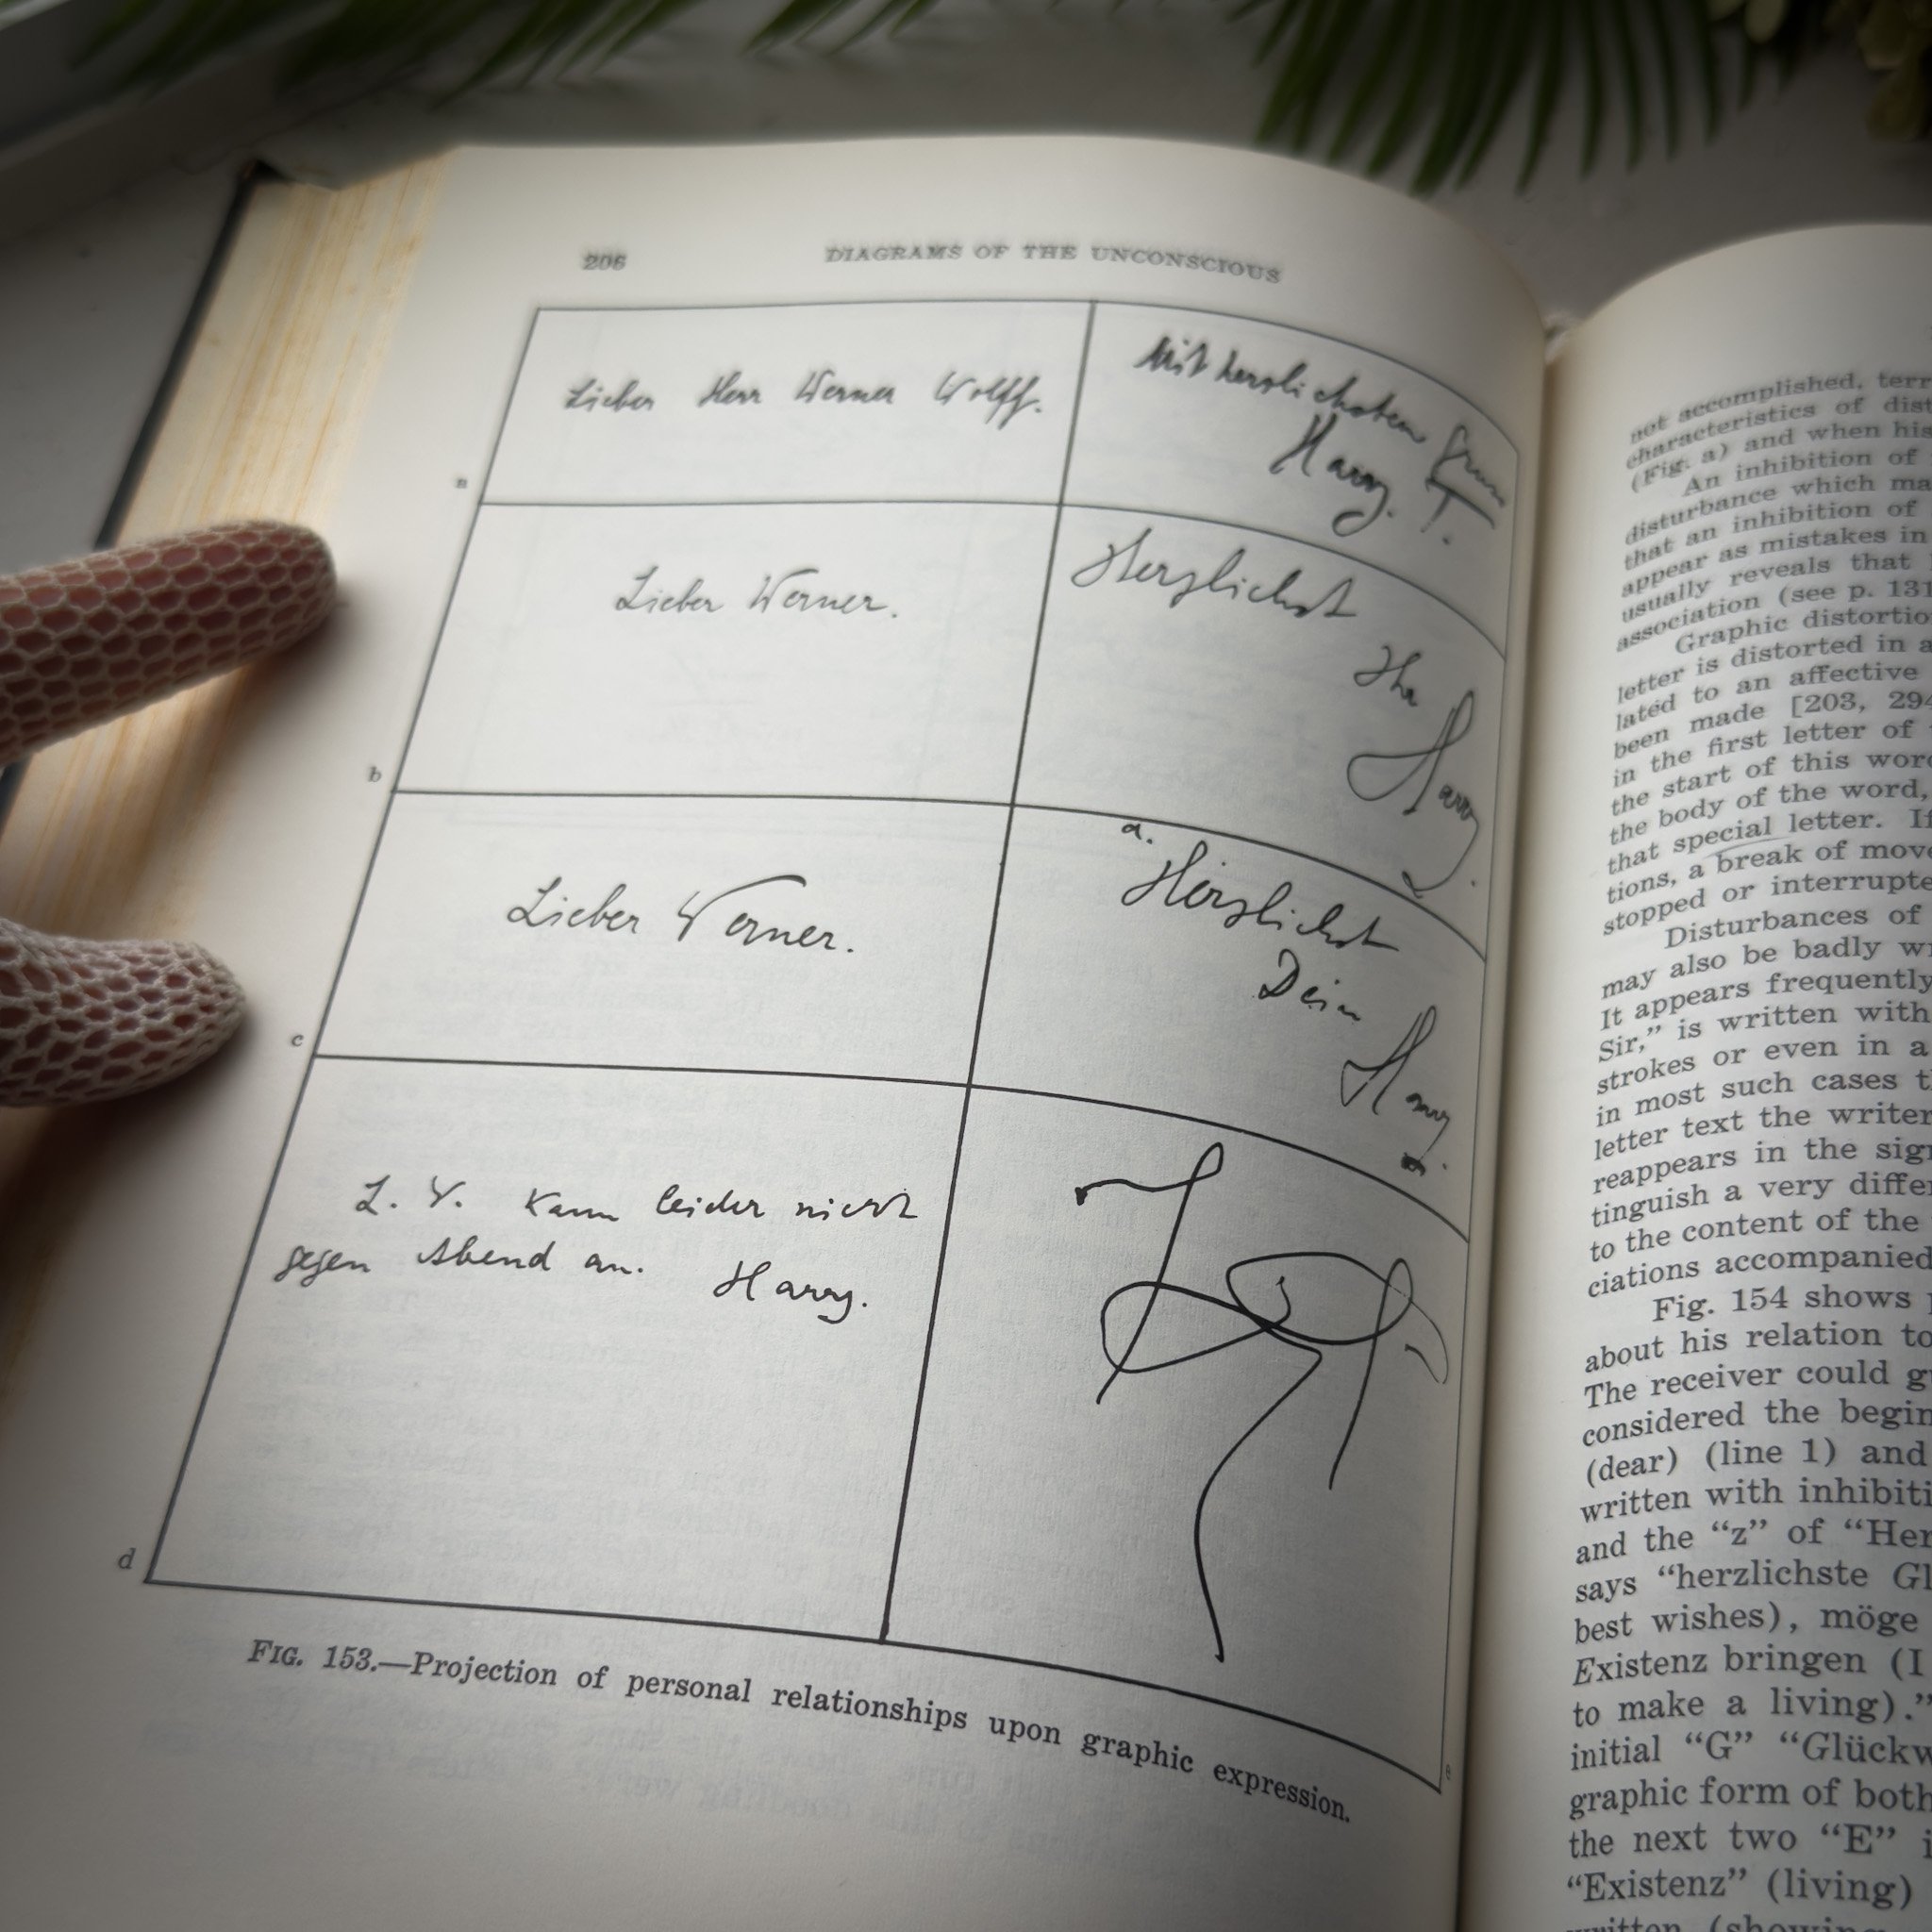 206 DIAGRAMS OF THE UNCONSCIOUS
Lieber Herr Werner Wolff.
Mit herzlichsten
Harry T.
a
Lieber Werner.
Herzlichst
Ihr
Harry
b
Lieber Werner.
a.
Herzlichst
Dein
Harry
c
L. W. Kann leider nicht
gegen Abend an. Harry.
d
e
FIG. 153.—Projection of personal relationships upon graphic expression.
not accomplished, terr
characteristics of dist
(Fig. a) and when his
An inhibition of
disturbance which ma
that an inhibition of
appear as mistakes in
usually reveals that
association (see p. 131
Graphic distortio
letter is distorted in a
lated to an affective
been made [203, 294
in the first letter of
the start of this word
the body of the word,
that special letter. If
tions, a break of move
stopped or interrupte
Disturbances of
may also be badly wr
It appears frequently
Sir,” is written with
strokes or even in a
in most such cases th
letter text the writer
reappears in the sign
tinguish a very differ
to the content of the
ciations accompanied
Fig. 154 shows
about his relation to
The receiver could gu
considered the begin
(dear) (line 1) and
written with inhibiti
and the “z” of “Her
says “herzlichste Gl
best wishes), möge
Existenz bringen (I
to make a living).”
initial “G” “Glückw
graphic form of both
the next two “E” i
“Existenz” (living)
written (showing